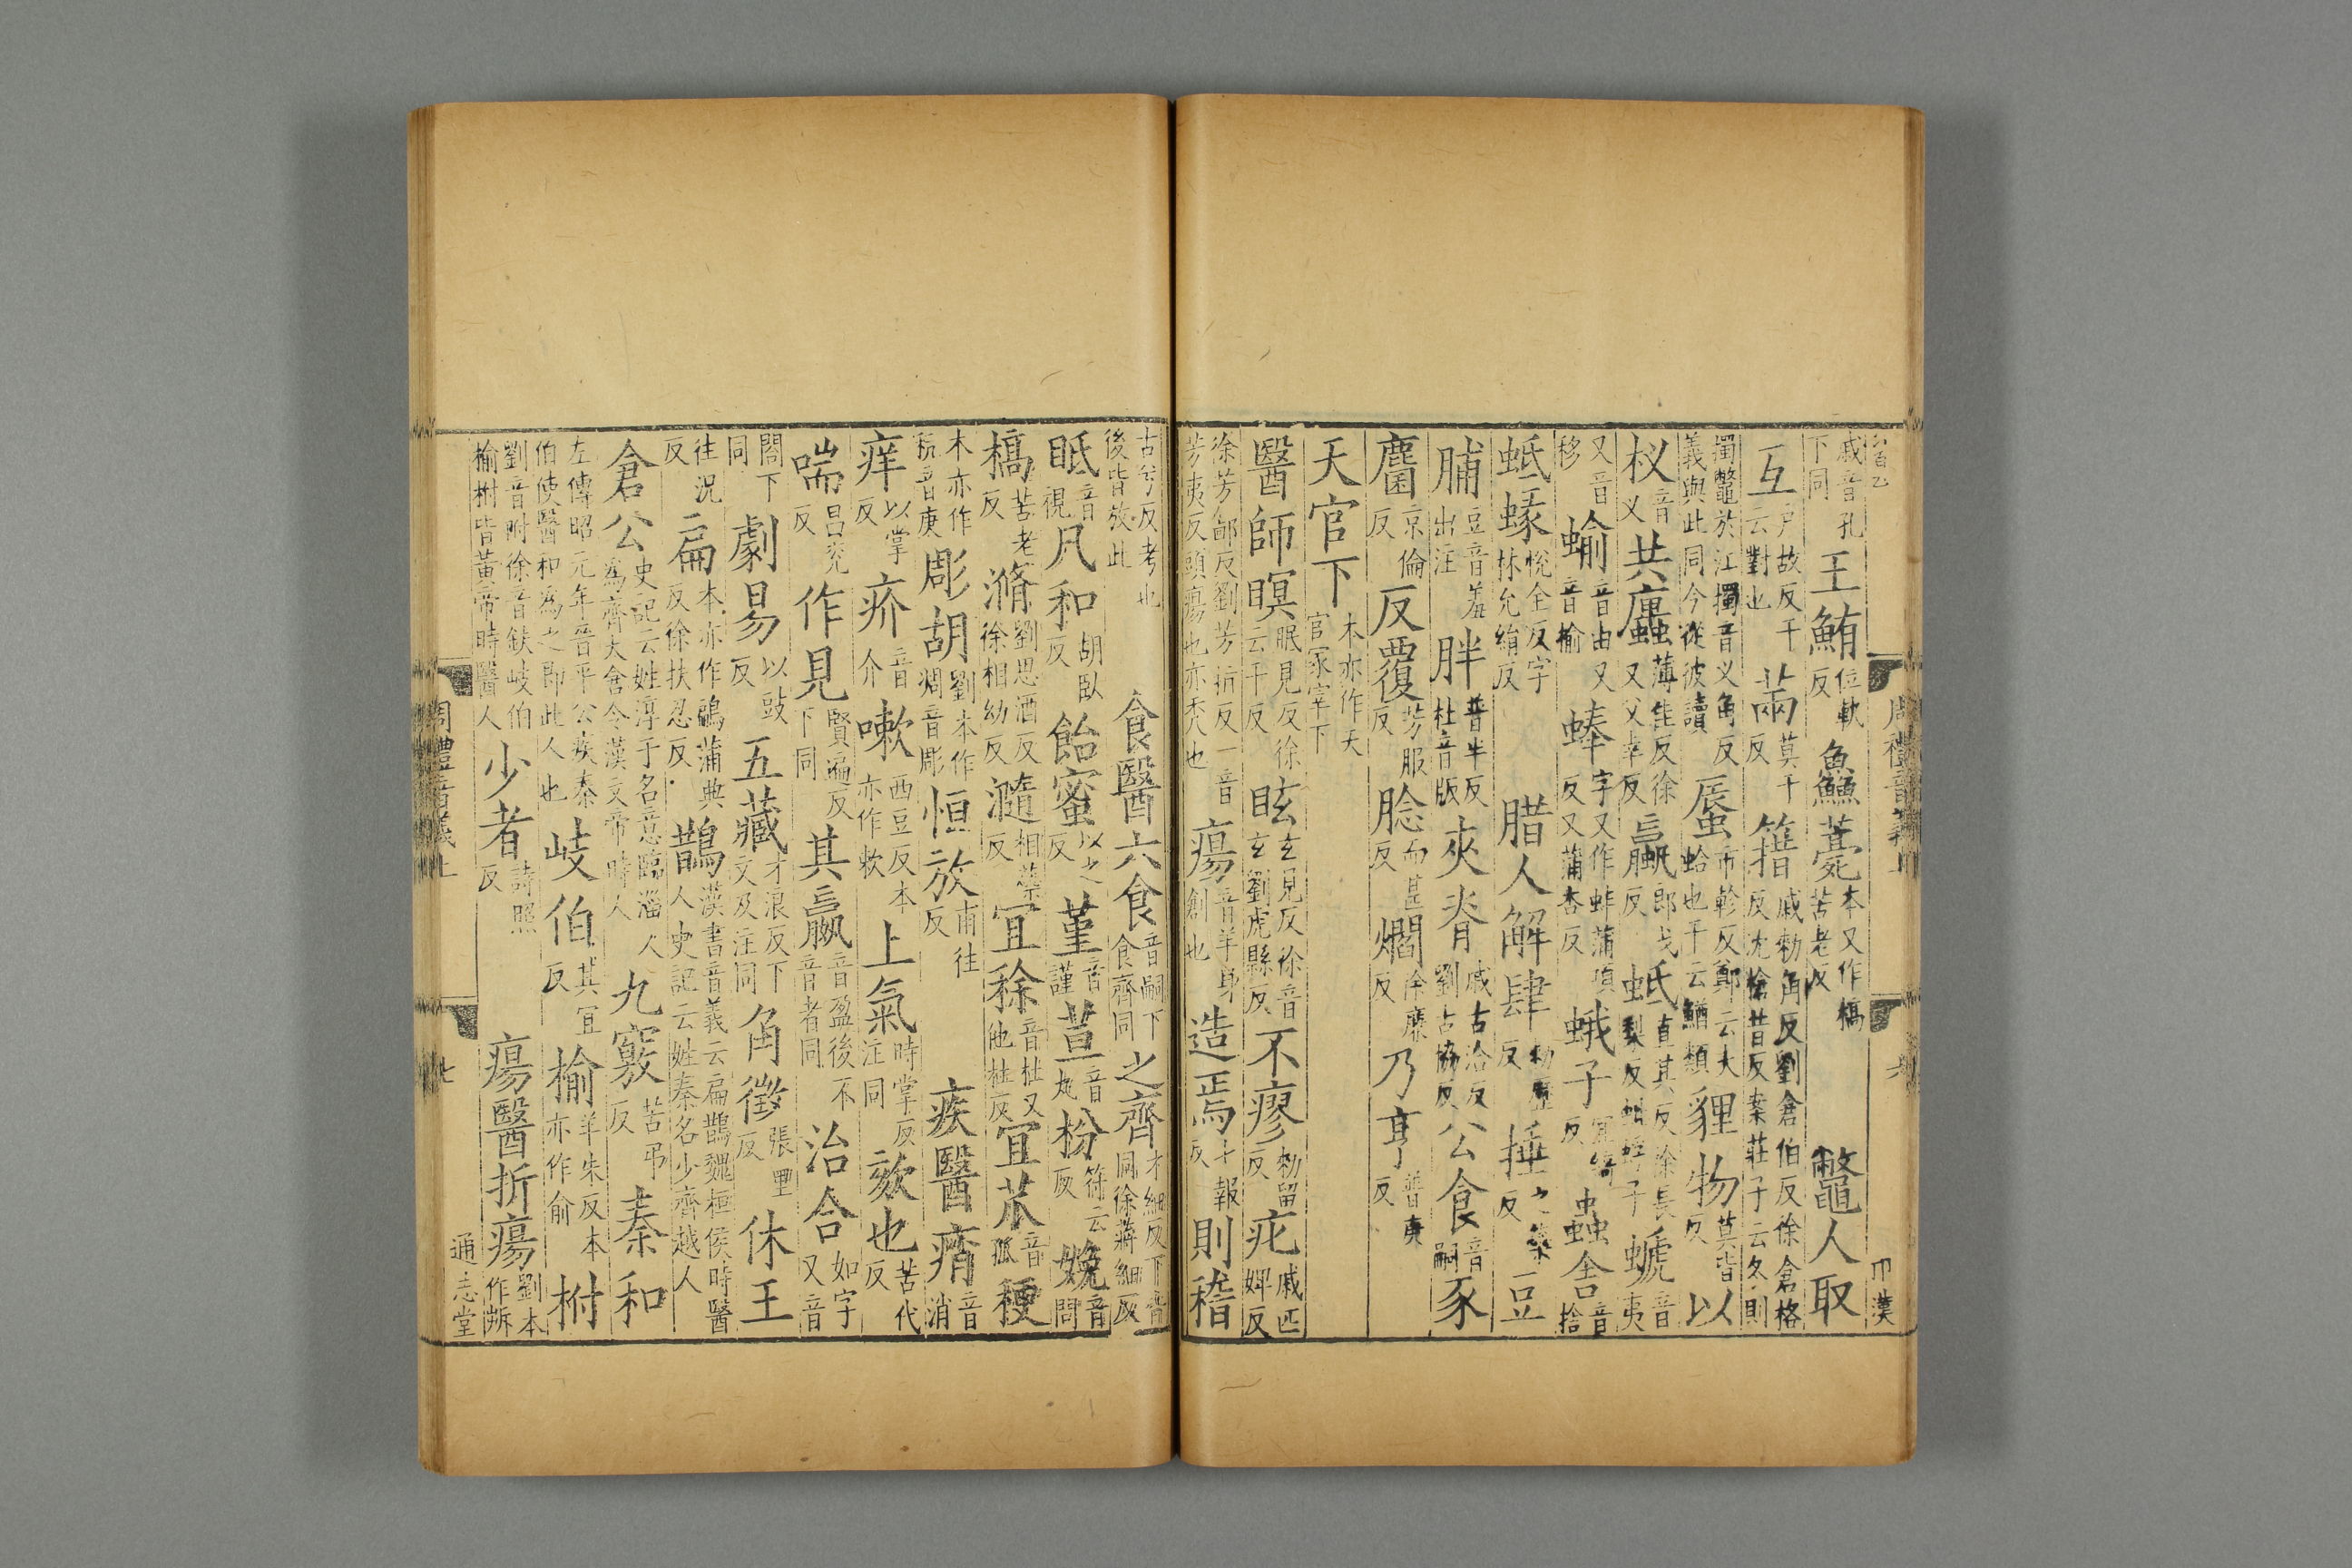 戚音孔下同 王鮪位軌反 魚鱻薧本又作槁苦老反 鼈人取
互戶故反干云對也 㒼莫干反 簎戚勑角反劉倉伯反徐倉格反沈槍昔反案莊子云冬則
擉鼈於江擉音义角反義與此同今從彼讀 蜃市軫反鄭云大蛤也干云鰌類 貍物莫皆反 以
杈音义 共蠯薄佳反徐又父幸反 蠃郎戈反 蚳直其反徐長梨反蚍蜉子 螔音夷
又音移 蝓音由又音榆 蜯字又作蚌蒲項反又蒲杏反 蛾子宜綺反 蟲舍音捨
蚳蝝悅全反字林允絹反 腊人解肆勑歷反 捶之橤反 豆
脯豆音羞出注 胖普半反杜音版 夾脊戚古洽反劉古協反 公食音嗣 豕
麕京倫反 反覆芳服反 腍而甚反 爓徐廉反 乃亨普庚反
天官下本亦作天官冢宰下
醫師瞑眠見反徐云千反 眩玄見反徐音玄劉虎縣反 不瘳勑留反 疕戚匹婢反
徐芳鄙反劉芳指反一音芳夷反頭瘍也亦禿也 瘍音羊身創也 造焉才報反 則稽
古兮反考也後皆放此 食醫六食音嗣下食齊同 之齊才細反下皆同徐蔣細反
眂音視 凡和胡臥反 飴蜜以之反 堇音謹 荁音丸 枌符云反 娩音問
槁苦老反 滫劉思酒反徐相幼反 瀡相橤反 宜稌音杜又他杜反 宜苽音孤 稉
本亦作秔音庚 彫胡劉本作凋音彫 恒放甫往反 疾醫痟音消
痒以掌反 疥音介 嗽西豆反本亦作欶 上氣時掌反注同 欬也苦代反
喘昌兖反 作見賢遍反下同 其嬴音盈後不音者同 治合如字又音
閤下同 劇易以豉反 五藏才浪反下文及注同 角徵張里反 休王
往況反 扁本亦作鶣蒲典反徐扶忍反 鵲漢書音義云扁鵲魏桓侯時醫人史記云姓秦名少齊越人
倉公史記云姓淳于名意臨淄人爲齊大倉令漢文帝時人 九竅苦弔反 秦和
左傳昭元年晉平公疾秦伯使醫和爲之即此人也 岐伯其宜反 榆羊朱反本亦作俞 柎
劉音附徐音鈇岐伯榆柎皆黃帝時醫人 少者詩照反 瘍醫折瘍劉本作㪿
周禮音義上
通志堂